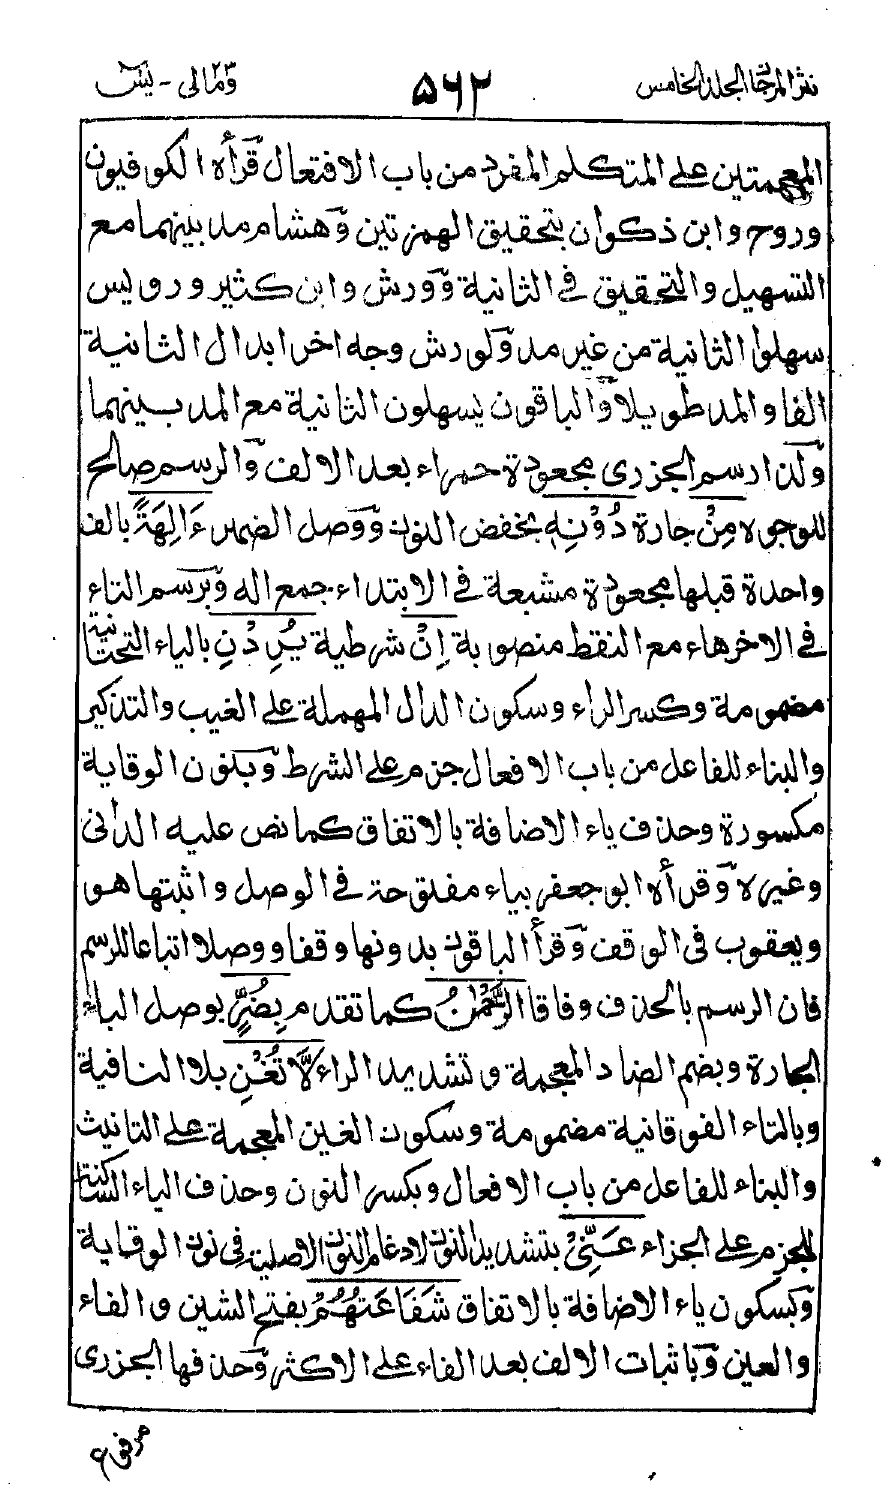 نثر المرجان المجلد الخامس
٥٦٢
ومالی ٢٣ - یٰسٓ
المعجمتين على المتكلم المفرد من باب الافتعال قرأه الكوفيون
وروح وابن ذكوان بتحقيق الهمزتين وهشام مد بينهما مع
التسهيل والتحقيق في الثانية وورش وابن كثير ورويس
سهلوا الثانية من غير مد ولورش وجه اخر ابدال الثانية
الفا والمد طويلا والباقون يسهلون الثانية مع المد بينهما
ولذا رسم الجزرى مجعودة حمراء بعد الالف والرسم صالح
للوجوه مِنْ جارة دُوْنِهٖ بخفض النون ووصل الضمير ءَالِهَةً بالف
واحدة قبلها مجعودة مشبعة في الابتداء جمع اله وبرسم التاء
في الاخر هاء مع النقط منصوبة اِنْ شرطية يُرِدْنِ بالياء التحتانية
مضمومة وكسر الراء وسكون الدال المهملة على الغيب والتذكير
والبناء للفاعل من باب الافعال جزم على الشرط وبنون الوقاية
مكسورة وحذف ياء الاضافة بالاتفاق كما نص عليه الدانى
وغيره وقرأه ابو جعفر بياء مفتوحة في الوصل واثبتها هو
ويعقوب فى الوقف وقرأ الباقون بدونها وقفا ووصلا اتباعا للرسم
فان الرسم بالحذف وفاقا الرَّحْمٰنُ كما تقدم بِضُرٍّ بوصل الباء
الجارة وبضم الضاد المعجمة وتشديد الراء لَّا تُغْنِ بلا النافية
وبالتاء الفوقانية مضمومة وسكون الغين المعجمة على التانيث
والبناء للفاعل من باب الافعال وبكسر النون وحذف الياء الساكنة
للجزم على الجزاء عَنِّىْ بتشديد النون لادغام النون الاصلية فى نون الوقاية
وبسكون ياء الاضافة بالاتفاق شَفَاعَتُهُمْ بفتح الشين والفاء
والعين وباثبات الالف بعد الفاء على الاكثر وحذفها الجزرى